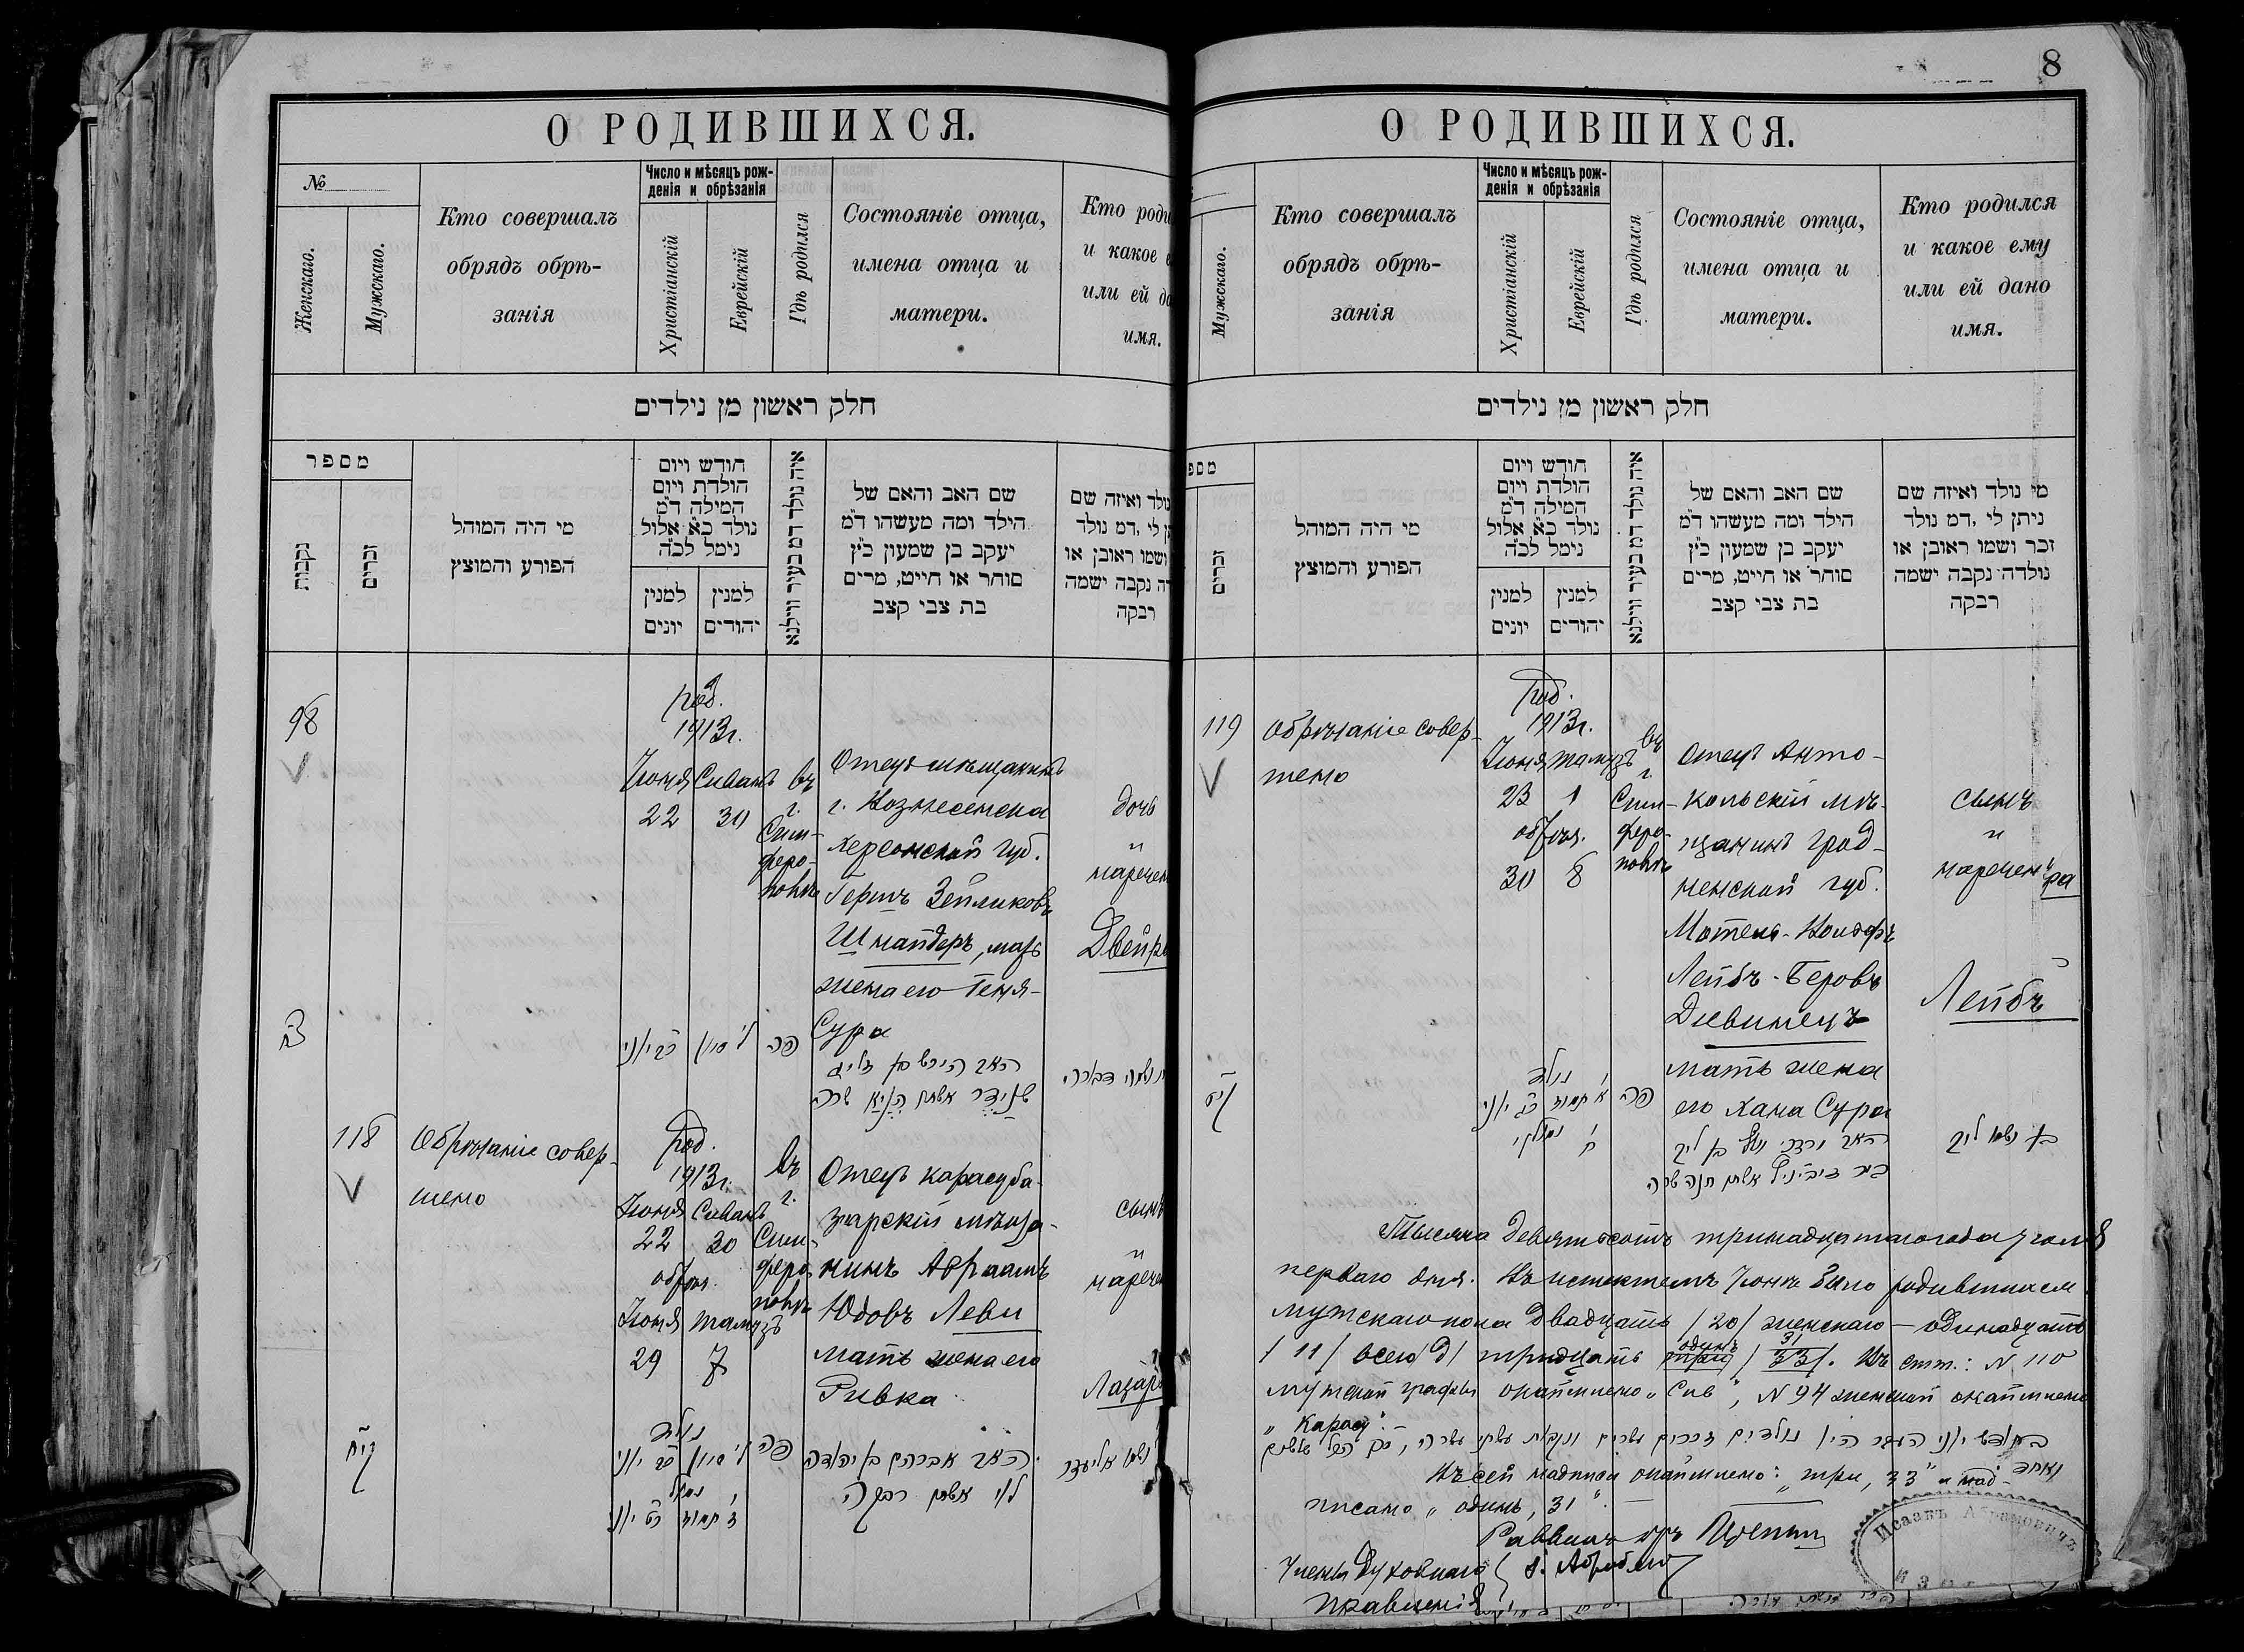 О РОДИВШИХСЯ.
№
Женскаго.
Мужскаго.
Кто совершалъ
обрядъ обрѣ-
занія
Число и мѣсяцъ рож-
денія и обрѣзанія
Христіанскій
Еврейскій
Гдѣ родился
Состояніе отца,
имена отца и
матери.
Кто роди
и какое е
или ей да
имя.
חלק ראשון מן נילדים
מספר
נקבות
זכרים
מי היה המוהל
הפורע והמוצץ
חודש ויום
הולדת ויום
המילה ד״מ
נולד כ״א אלול
נימל לכ״ה
למנין
יונים
למנין
יהודים
איה נולד דמ בעיר ווילנא
שם האב והאם של
הילד ומה מעשהו ד״מ
יעקב בן שמעון כ״ץ
סוחר או חייט, מרים
בת צבי קצב
נולד ואיזה שם
תן לי ,דמ נולד
ושמו ראובן או
דה נקבה ישמה
רבקה
98
род.
1913 г.
Іюня Сиванъ въ
22 30 г.
Сим-
феро-
полѣ
Отецъ мѣщанинъ
г. Вознесенска
Херсонской губ.
Гершъ Зейликовъ
Шнайдеръ, мать
жена его Геня-
Сура
дочь
и
наречен
Двейра
צח
כ״ב יוני
ל׳ סיון
פה
האב הירש בן זליג
שנידר אשתו הניא שרה
ושמה דבורה
118
Обрѣзаніе совер-
шено
род.
1913 г.
Іюня Сиванъ
22 30
обрѣз.
Іюня Тамузъ
29 7
въ
г.
Сим-
феро-
полѣ
Отецъ карасуба-
зарскій мѣща-
нинъ Абраамъ
Юдовъ Леви
мать жена его
Ривка
сынъ
и
наречен
Лазарь
קיח
נולד
ל׳ סיון כ״ב יוני
פה
נמול
ז׳ תמוז כ״ט יוני
האב אברהם בן יהודה
לוי אשתו רבקה
ושמו אליעזר
8
О РОДИВШИХСЯ.
Мужскаго.
Кто совершалъ
обрядъ обрѣ-
занія
Число и мѣсяцъ рож-
денія и обрѣзанія
Христіанскій
Еврейскій
Гдѣ родился
Состояніе отца,
имена отца и
матери.
Кто родился
и какое ему
или ей дано
имя.
חלק ראשון מן נילדים
מספ
זכרים
מי היה המוהל
הפורע והמוצץ
חודש ויום
הולדת ויום
המילה ד״מ
נולד כ״א אלול
נימל לכ״ה
למנין
יונים
למנין
יהודים
איה נולד דמ בעיר ווילנא
שם האב והאם של
הילד ומה מעשהו ד״מ
יעקב בן שמעון כ״ץ
סוחר או חייט, מרים
בת צבי קצב
מי נולד ואיזה שם
ניתן לי ,דמ נולד
זכר ושמו ראובן או
נולדה נקבה ישמה
רבקה
119
Обрѣзаніе совер-
шено
род.
1913 г.
Іюня Тамузъ
23 1
обрѣз.
30 8
въ
г.
Сим-
феро-
полѣ
Отецъ Анто-
польскій мѣ-
щанинъ Грод-
ненской губ.
Лейбъ-Беровъ
Дивинецъ
мать жена
его Хана Сура
сынъ
и
нареченъ
Лейбъ
קיט
נולד
א׳ תמוז כ״ג יוני
פה
אשתו חנה שרה
Тысяча девятьсотъ тринадцатаго года іюля
перваго дня. Въ истекшемъ Іюнѣ было родившихся
мужскаго пола двадцать /20/ женскаго - одинадцать
/11/ всего тридцать три одинъ 31 /33/. Въ стт.: N 110
мужской графы охаймлено „Сив", N 94 женской охаймлено
„Карасу".
Въ сей надписи охаймлено: „три, 33" и над-
писано „одинъ, 31".
Раввинъ
Члены Духовнаго
правленія
Исаакъ Абрамовичъ